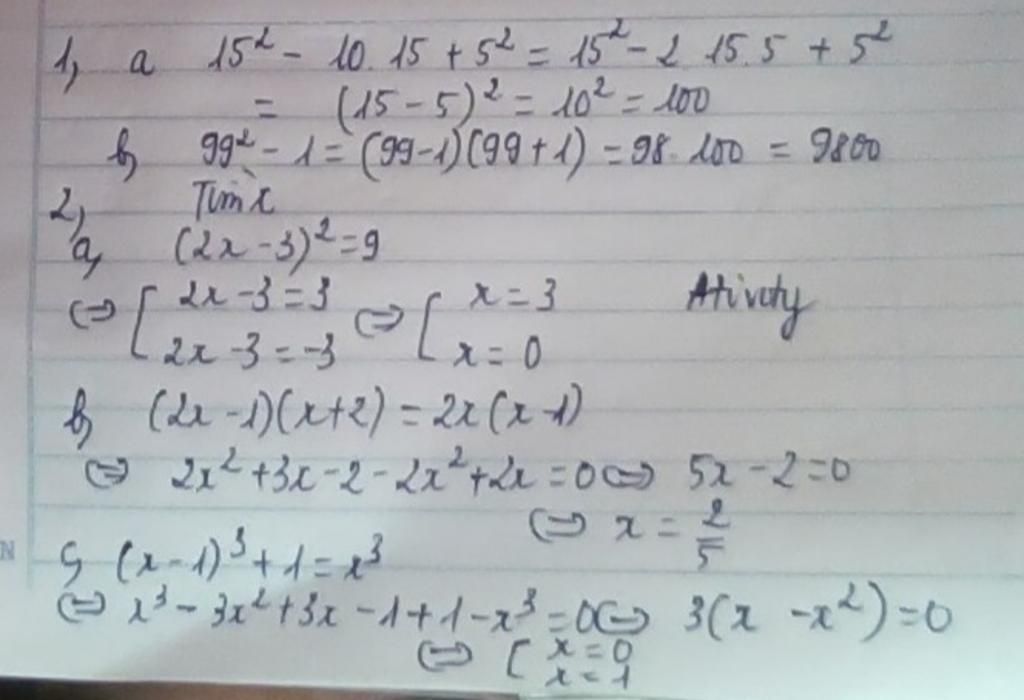 1, a 15² - 10.15 + 5² = 15² - 2 15.5 + 5²
= (15 - 5)² = 10² = 100
b, 99² - 1 = (99-1)(99+1) = 98.100 = 9800
2, Tìm x
a, (2x - 3)² = 9
⇔ [ 2x - 3 = 3 ⇔ [ x = 3 Ativity
2x - 3 = -3 x = 0
b, (2x - 1)(x+2) = 2x(x-1)
⇔ 2x² + 3x - 2 - 2x² + 2x = 0 ⇔ 5x - 2 = 0
⇔ x = 2/5
N
c, (x - 1)³ + 1 = x³
⇔ x³ - 3x² + 3x - 1 + 1 - x³ = 0 ⇔ 3(x - x²) = 0
⇔ [ x = 0
x = 1